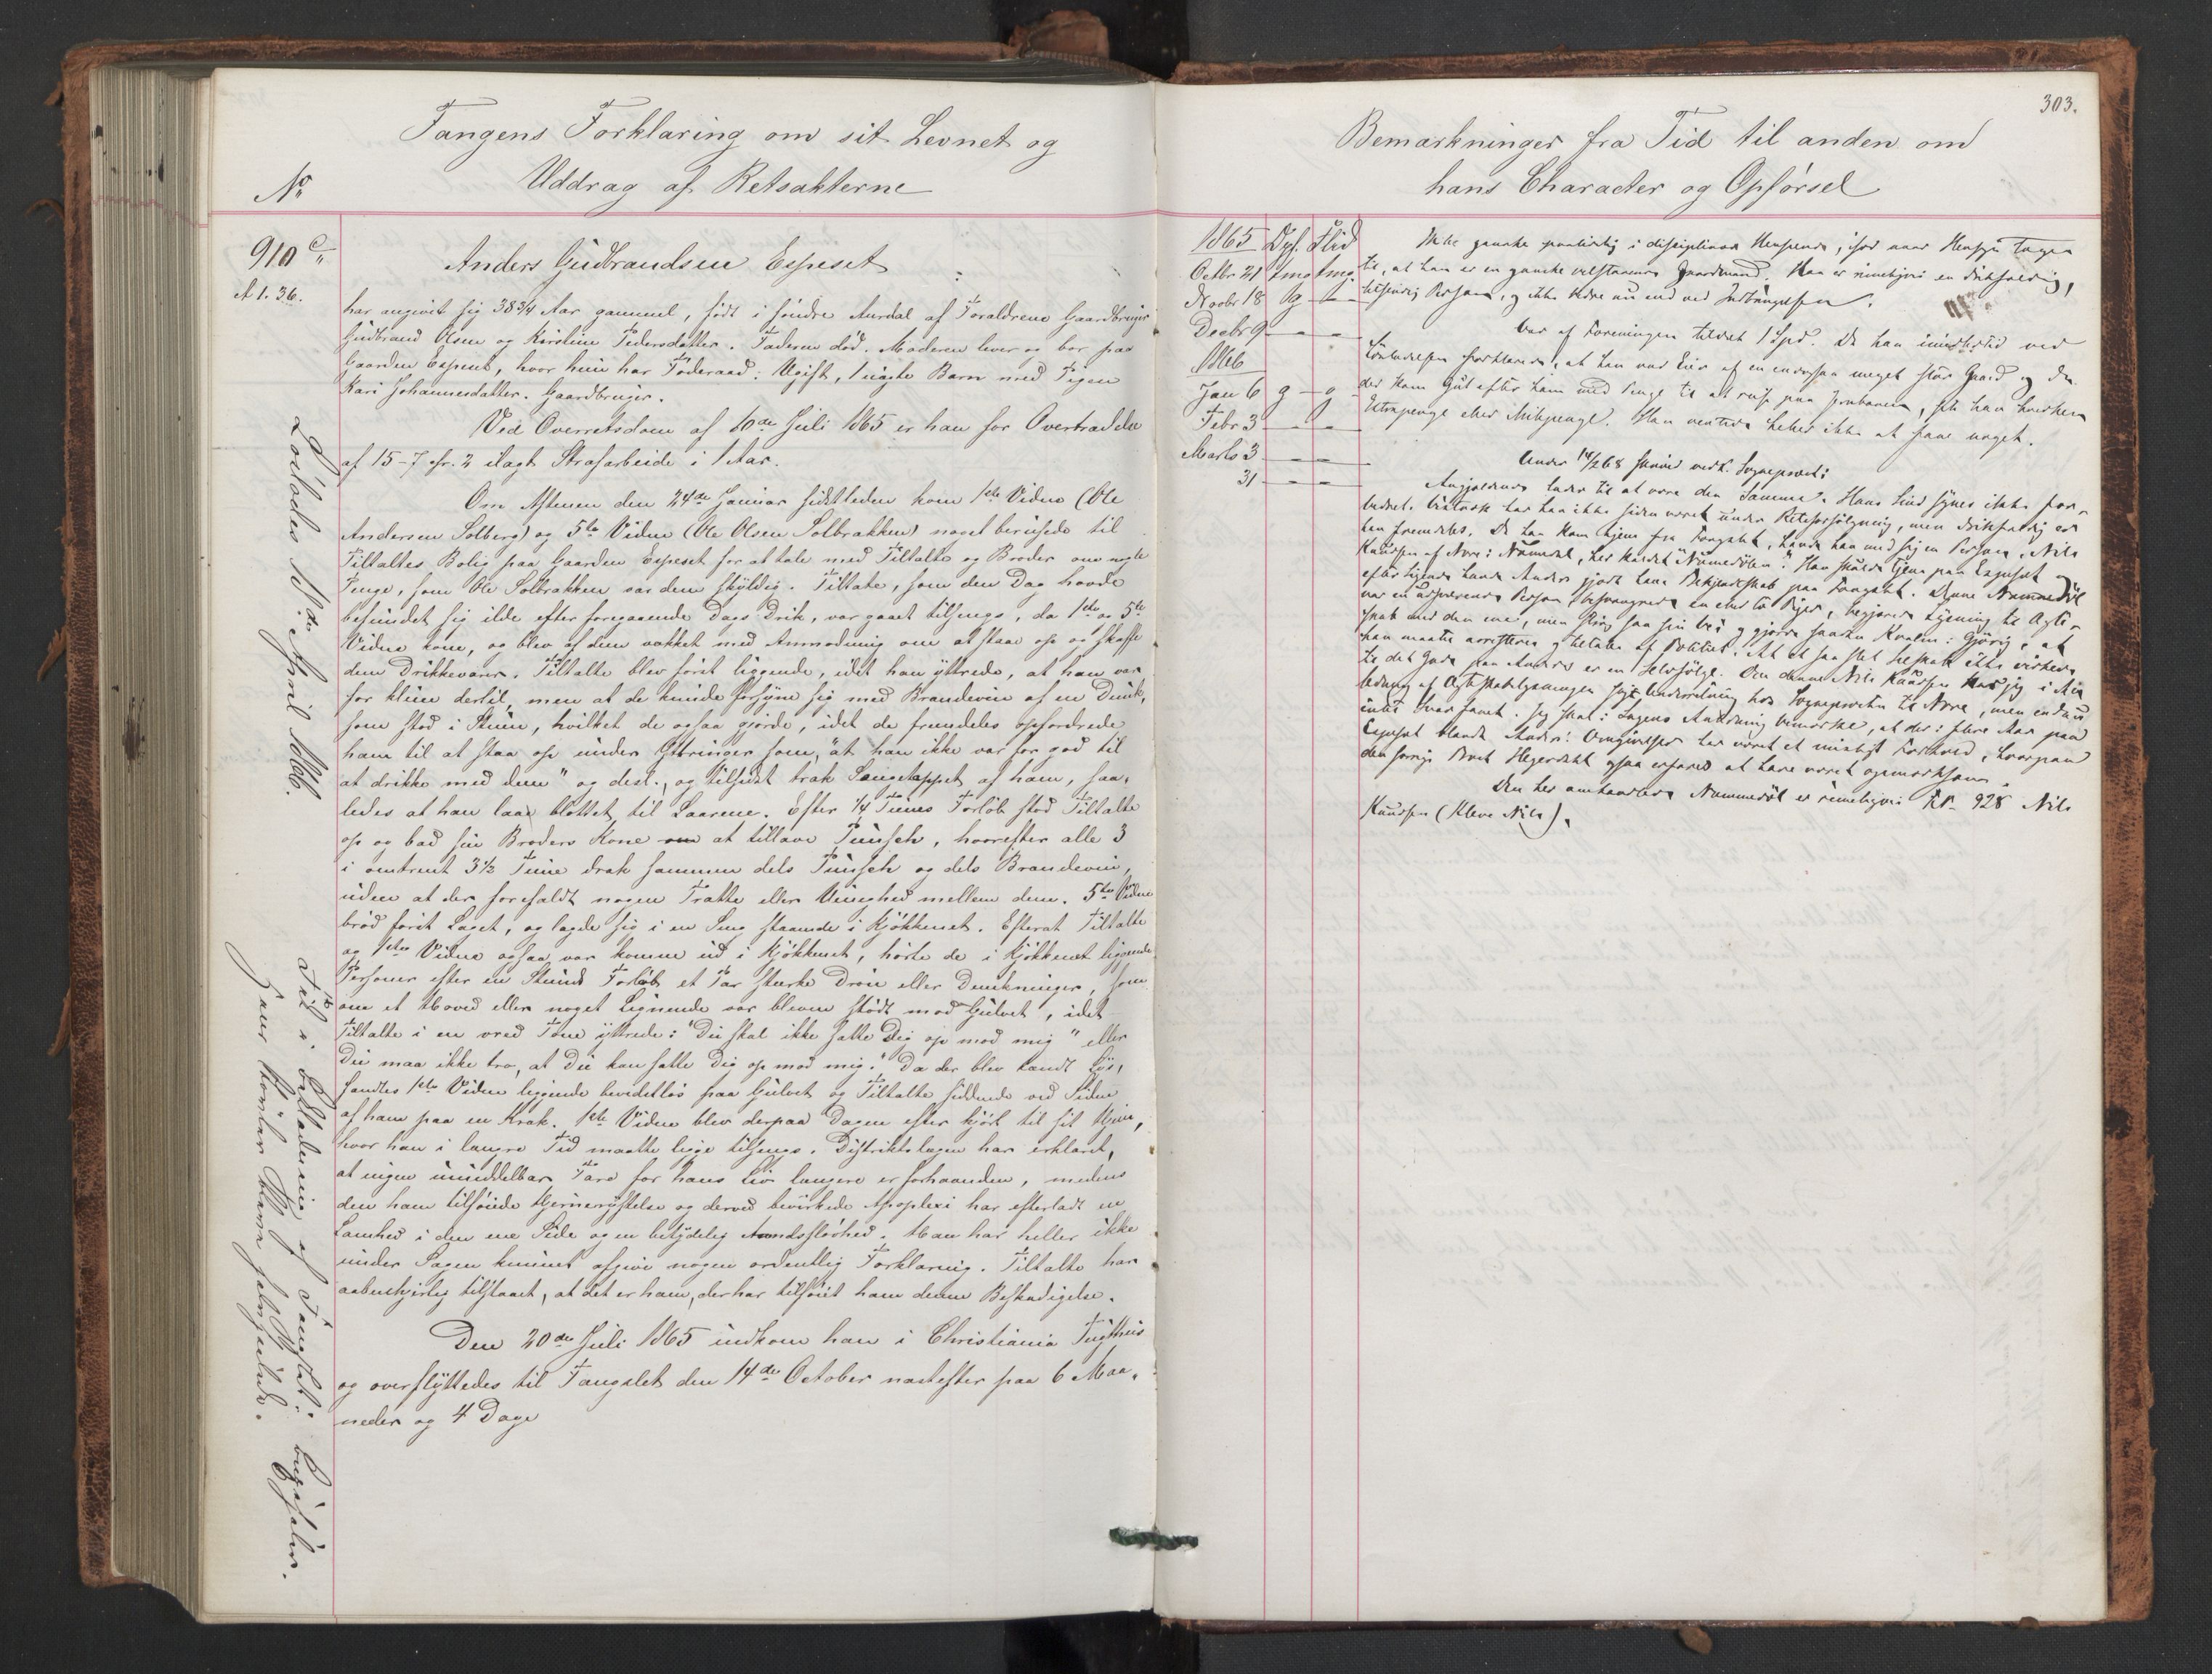 Fangens Forklaring om sit Levnet og
Uddrag af Retsakterne
No
910 C
A 1. 36.
Anders Gudbrandsen Espeset
har angivet sig 38 3/4 Aar gammel, født i søndre Aurdal af Forældrene Gaardbruger
Gudbrand Olsen og Kirstine Pedersdatter. Faderen død. Moderen lever og bor paa
Gaarden Espeset, hvor hun har Føderaad. Ugift, 1 uægte Barn med Pigen
Kari Johannesdatter. Gaardbruger.
Ved Overretsdom af 10de Juli 1865 er han for Overtrædelse
af 15-7 cfr. 2 ilagt Strafarbeide i 1 Aar.
Om Aftenen den 24de Januar sidstleden kom 1ste Vidne (Ole
Andersen Solberg) og 5te Vidne (Ole Olsen Solbrækken) noget berusede til
Tiltaltes Bolig paa Gaarden Espeset for at tale med Tiltalte og Broder om nogle
Penge, som Ole Solbrækken var dem skyldig. Tiltalte, som den Dag havde
befundet sig ilde efter foregaaende Dags Drik, var gaaet tilsengs, da 1ste og 5te
Vidne kom, og blev af dem vækket med Anmodning om at staae op og skaffe
dem Drikkevarer. Tiltalte blev først liggende, idet han yttrede, at han var
for klein dertil, men at de kunde forsyne sig med Brændevin af en Dunk,
som stod i Stuen, hvilket de ogsaa gjorde, idet de fremdeles opfordrede
ham til at staa op under Yttringer som, "at han ikke var for god til
at drikke med dem" og desl., og tilsidst trak Sengetæppet af ham, saa-
ledes at han laae blottet til Laarene. Efter 1/4 Times Forløb stod Tiltalte
op og bad sin Broders Kone om at tillave Punsch, hvorefter alle 3
i omtrent 3 1/2 Time drak sammen dels Punsch og dels Brændevin,
uden at der forefaldt nogen Trætte eller Uenighed mellem dem. 5te Vidne
brød først Laget, og lagde sig i en Seng staaende i Kjøkkenet. Efterat Tiltalte
og 1ste Vidne ogsaa var komne ud i Kjøkkenet, hørte de i Kjøkkenet liggende
Personer efter en Stunds Forløb et Par stærke Drøn eller Dunkninger, som
om et Hoved eller noget Lignende var bleven stødt mod Gulvet, idet
Tiltalte i en vred Tone yttrede: "Du skal ikke sætte Dig op mod mig" eller
Du maa ikke tro, at Du kan sætte Dig op mod mig." Da der blev tændt Lys,
fandtes 1ste Vidne liggende bevidstløs paa Gulvet og Tiltalte siddende ved Siden
af ham paa en Krak. 1ste Vidne blev derpaa Dagen efter kjørt til sit Hjem,
hvor han i længre Tid maatte ligge tilsengs. Distriktslægen har erklæret,
at ingen umiddelbar Fare for hans Liv længere er forhaanden, medens
den ham tilføiede Hjernerystelse og derved bevirkede Apoplexi har efterladt en
Lamhed i den ene Side og en betydelig Aandssløvhed. Han har heller ikke
under Sagen kunnet afgive nogen ordentlig Forklaring. Tiltalte har
aabenhjertig tilstaaet, at det er ham, der har tilføiet ham denne Beskadigelse.
Den 20de Juli 1865 indkom han i Christiania Tugthus
og overflyttedes til Fængslet den 14de October næstefter paa 6 Maa-
neder og 4 Dage
Løslodes 18de April 1866.
Tid i Beklædning af Fængslet:
303.
Bemærkninger fra Tid til anden om
hans Character og Opførsel
1865 Opf. Flid
Octbr 21 Tmg Tmg
Novbr 18 g —
Decbr 9 — —
1866
Jan 6 g — g
Febr 3 — —
Marts 3 — —
31 — —
Ikke ganske paalidelig i disciplinær Henseende, især naar Hensyn tages
til, at han er en ganske velstaaende Gaardmand. Han er rimeligvis en drikfældig,
hidsig Person, og ikke bedre nu end ved Indbringelsen.
Var af Foreningen tildelt 1 Spd. Da han imidlertid ved
Løsladelsen forklarede, at han var Eier af en endogsaa meget stor Gaard og der-
der kom Gut efter ham med Penge til at reise paa Jernbanen, fik han hverken
Extrapenge eller Reisepenge. Han ventede heller ikke at faae noget.
Under 14/2 68 skriver vedk. Sogneprest:
Angjældende lader til at være den Samme. Hans Sind synes ikke for-
bedret. Vistnok har han ikke siden været under Retsforfølgning, men drikfældig er
han fremdeles. Da han kom hjem fra Fængslet, havde han med sig en Person, Nils
Knudsen af Nore i Numedal, her kaldet "Numedølen". Han skulde tjene paa Espeset og
efter Sigende havde Anders gjort hans Bekjendtskab paa Fængslet. Denne Numedøl
var en udsvævende Person, besvangrede en eller to Piger, begjærede Lysning til Ægte-
skab med den ene, men
han maatte arresteres og tiltales af Politiet. At et saa slet Selskab ikke virkede
til det Gode paa Anders er en Selvfølge. Om denne Nils Knudsen har jeg i An-
ledning af Ægteskabslysningen søgt Underretning hos Sognepresten til Nore, men endnu
intet Svar faaet. Jeg skal i Sagens Anledning bemærke, at der i flere Aar paa
Espeset blandt Anders's Omgivelser har været et misligt Forhold, hvorpaa
den forrige Prest Hegerdahl ogsaa erfares at have været opmærksom.
Den her omhandlede Nummedøl er rimeligvis Fr. 928 Nils
Knudsen (Kleve Nils).